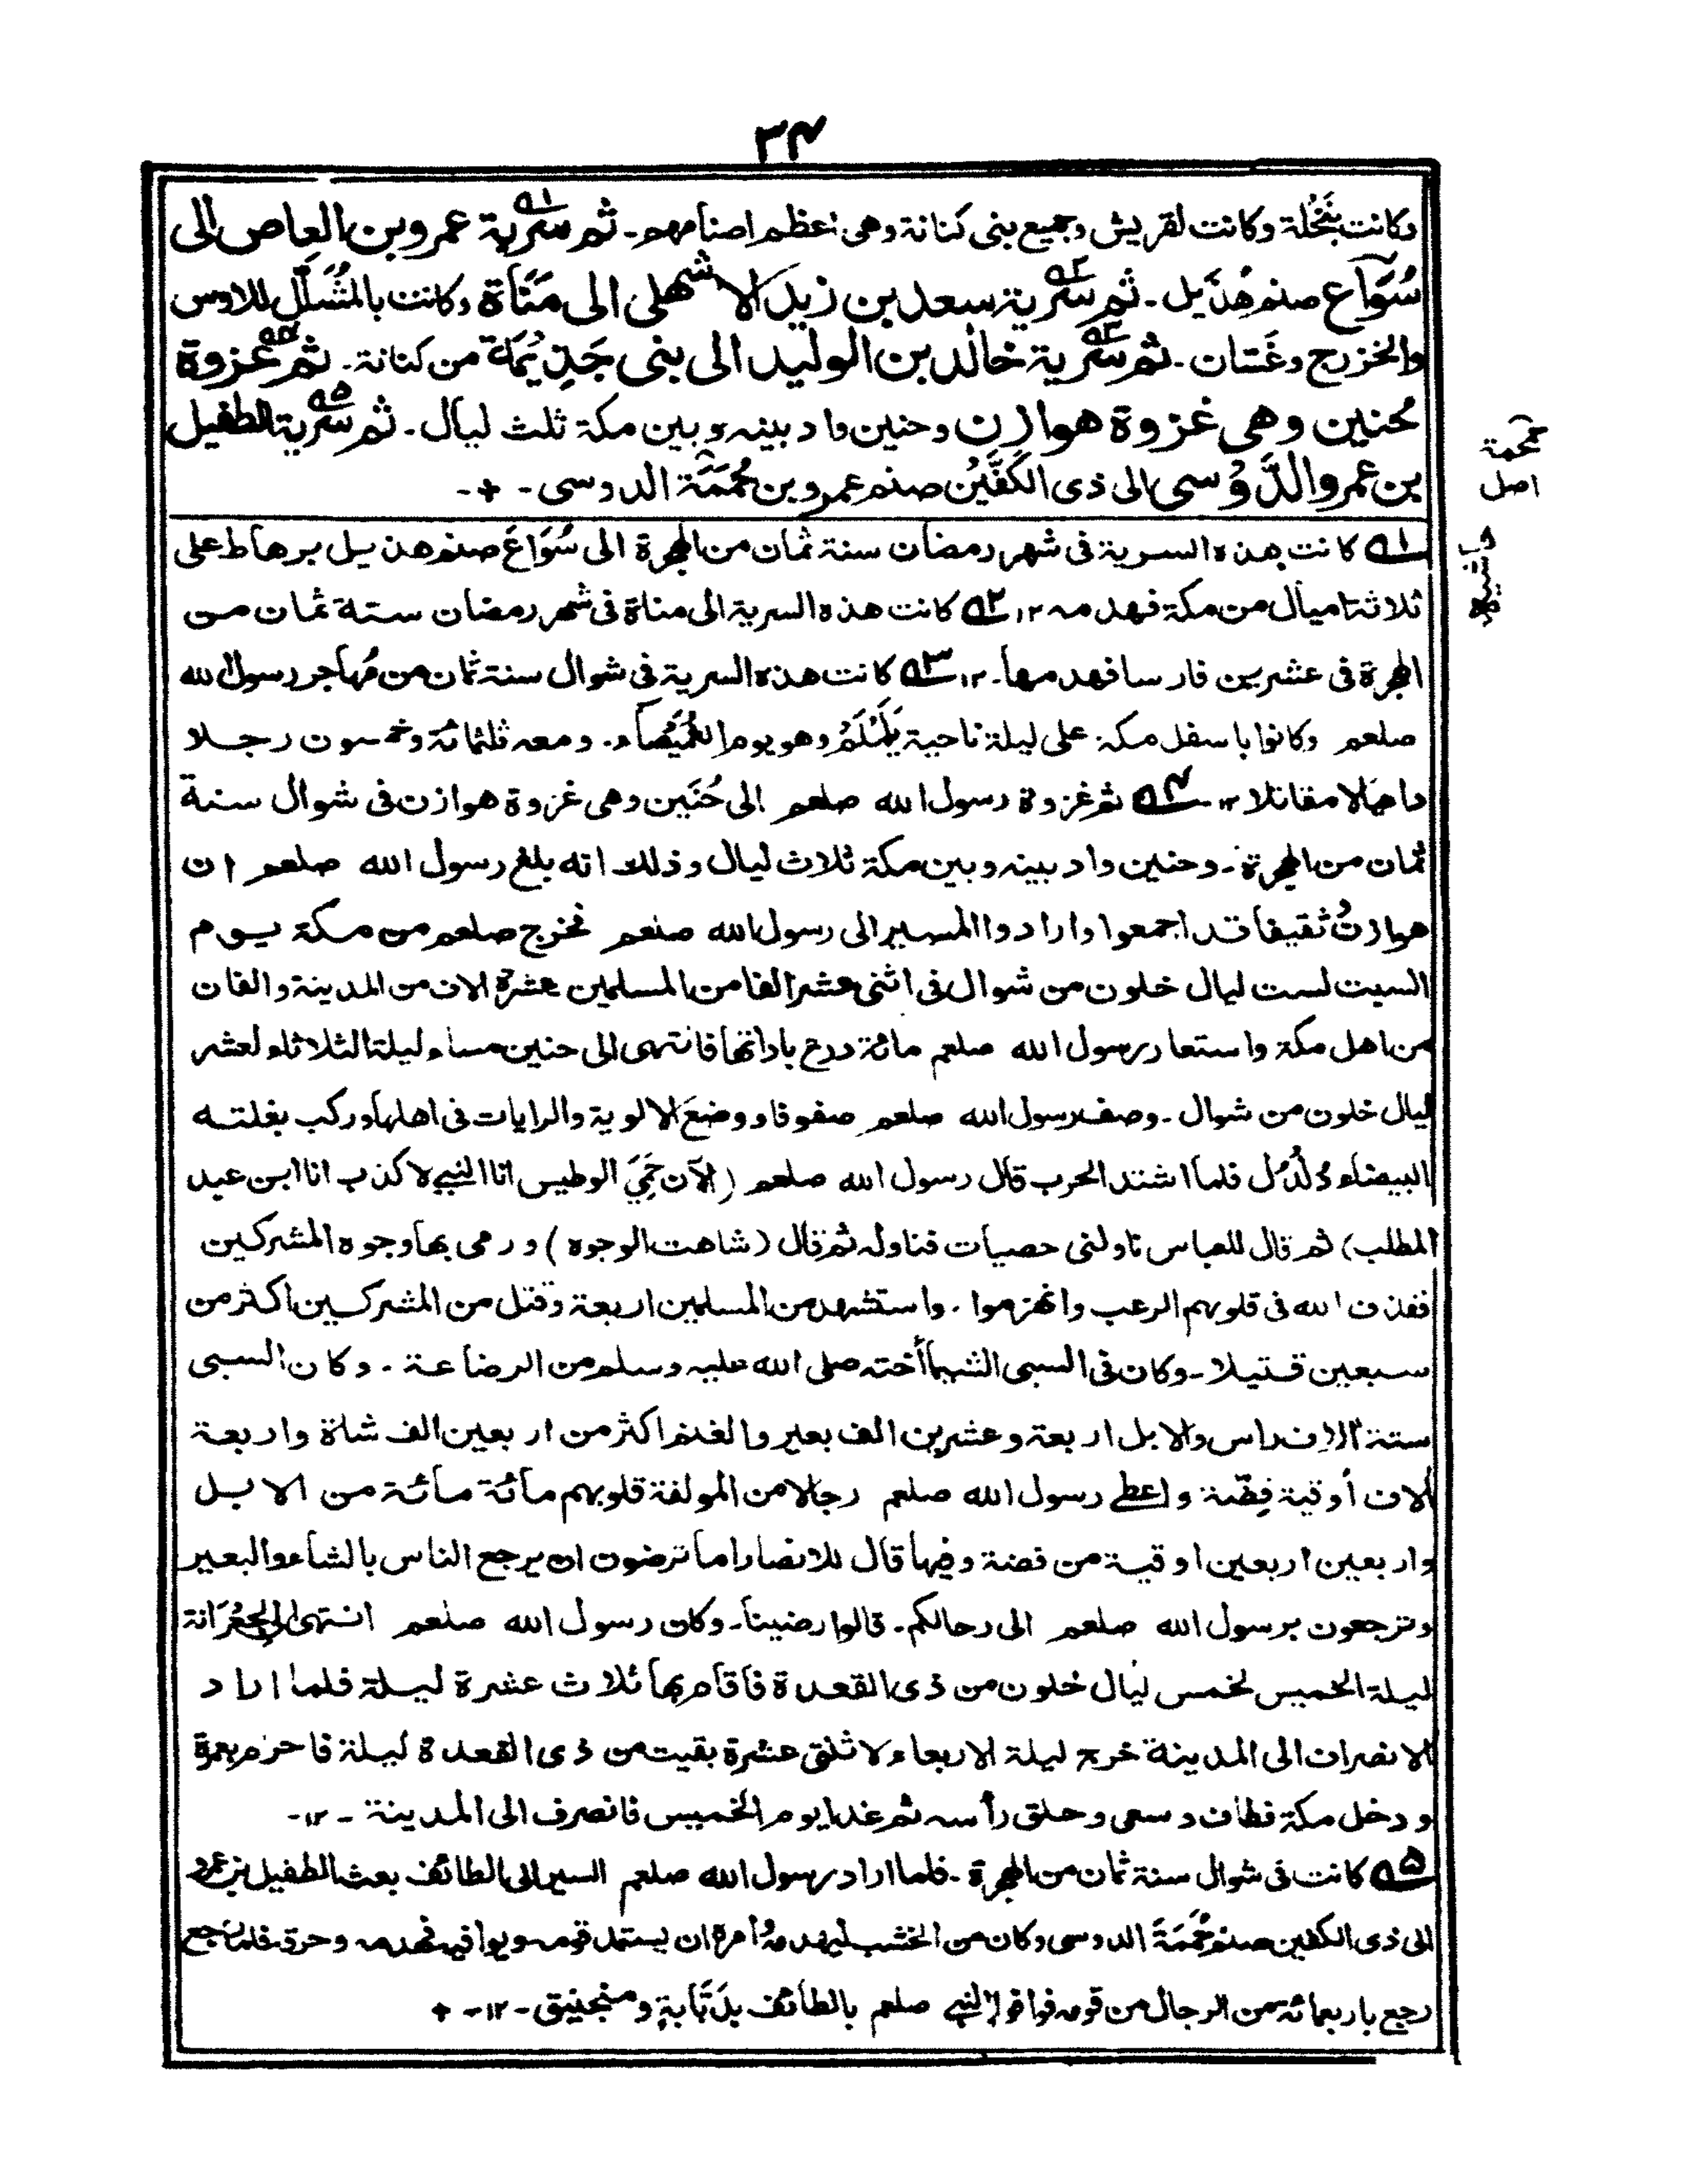 ۳۴
وكانت بنَخْلة وكانت لقريش وجميع بنى كنانة وهى اعظم اصنامهم۔ ثم سرية عمرو بن العاص الى
سُوَاع صنم هُذَيل۔ ثم سرية سعد بن زيد الاشهلى الى مَنَاة وكانت بالمُشَلَّل للاوس
والخزرج وغَسّان۔ ثم سرية خالد بن الوليد الى بنى جَذِيْمَة من كنانة۔ ثم غزوة
حُنين وهى غزوة هوازن وحنين واد بينه وبين مكة ثلث ليال۔ ثم سرية الطفيل
بن عمرو الدَّوْسى الى ذى الكَفَّيْن صنم عمرو بن حُمَمَة الدوسى۔
حممة
اصل
۱ كانت هذه السرية فى شهر رمضان سنة ثمان من الهجرة الى سُوَاعَ صنم هذيل برهاط على
ثلاثة اميال من مكة فهدمه ۱۲ ۲ كانت هذه السرية الى مناة فى شهر رمضان ستة ثمان من
الهجرة فى عشرين فارسا فهدمها۔ ۱۲ ۳ كانت هذه السرية فى شوال سنة ثمان من مُهاجر رسول الله
صلعم وكانوا باسفل مكة على ليلة ناحية يَلَمْلَمْ وهو يوم الغُمَيْصَاء۔ ومعه ثلثمائة وخمسون رجلا
داعيا لا مقاتلا ۱۲ ۴ ثم غزوة رسول الله صلعم الى حُنَين وهى غزوة هوازن فى شوال سنة
ثمان من الهجرة۔ وحنين واد بينه وبين مكة ثلاث ليال وذلك انه بلغ رسول الله صلعم ان
هوازنُ ثقيفا قد اجمعوا وارادوا المسير الى رسول الله صلعم فخرج صلعم من مكة يوم
السبت لست ليال خلون من شوال فى اثنى عشر الفا من المسلمين عشرة الاف من المدينة والفان
من اهل مكة واستعار رسول الله صلعم مائة درع باداتها فانتهى الى حنين مساء ليلة الثلاثاء لعشر
ليال خلون من شوال۔ وصف رسول الله صلعم صفوفا ووضعَ الالوية والرايات فى اهلها وركب بغلته
البيضاء دُلْدُل فلما اشتد الحرب قال رسول الله صلعم (الآن حَمِيَ الوطيس انا النبي لا كذب انا ابن عبد
المطلب) ثم قال للعباس ناولنى حصيات فناوله ثم قال (شاهت الوجوه) ورمى بها وجوه المشركين
فقذف الله فى قلوبهم الرعب وانهزموا۔ واستشهد من المسلمين اربعة وقتل من المشركين اكثر من
سبعين قتيلا۔ وكان فى السبى الشيما أخته صلى الله عليه وسلم من الرضاعة۔ وكان السبى
ستة آلاف راس والابل اربعة وعشرين الف بعير والغنم اكثر من اربعين الف شاة واربعة
آلاف أوقية فِضّة واعطى رسول الله صلعم رجالا من المولفة قلوبهم مائة مائة من الابل
واربعين اربعين اوقية من فضة وفيها قال للانصار اما ترضون ان يرجع الناس بالشاء والبعير
وترجعون برسول الله صلعم الى رحالكم۔ قالوا رضينا۔ وكان رسول الله صلعم انتهى الى الجِعْرَانة
ليلة الخميس لخمس ليال خلون من ذى القعدة فاقام بها ثلاث عشرة ليلة فلما اراد
الانصراف الى المدينة خرج ليلة الاربعاء لاثنتى عشرة بقيت من ذى القعدة ليلة فاحرم بعمرة
ودخل مكة فطاف وسعى وحلق رأسه ثم غدا يوم الخميس فانصرف الى المدينة ۔ ۱۲۔
۵ كانت فى شوال سنة ثمان من الهجرة۔ فلما اراد رسول الله صلعم السير الى الطائف بعث الطفيل بن عمرو
الى ذى الكفين صنم حُمَمَةَ الدوسى وكان من الخشب ليهدمهُ وأمره ان يستمد قومه ويوافيه فهدمه وحرقه فلما رجع
رجع باربعمائة من الرجال من قومه فوافوا النبي صلعم بالطائف بدَبّابة ومنجنيق۔ ۱۲۔